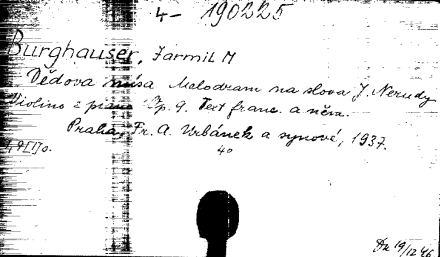 4- 190225
Burghauser, Jarmil M
Dědova mísa Melodram na slova J. Nerudy
Violino e piano Op. 9. Text franc. a něm.
Praha, Fr. A. Urbánek a synové, 1937.
4°
19/12 46